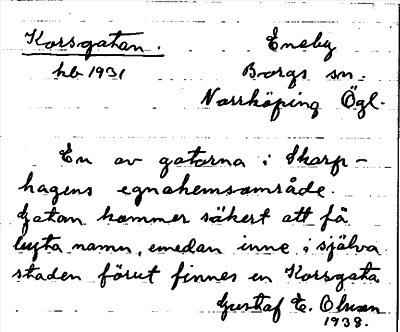 Korsgatan. Eneby
hb 1931 Borgs sn.
Norrköping Ögl.
En av gatorna i Skarp-
hagens egnahemsområde.
Gatan kommer säkert att få
byta namn, emedan inne i själva
staden förut finnes en Korsgata
Gustaf E. Olsson
1938.